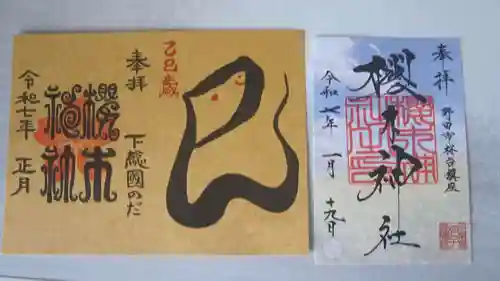 乙巳歳
奉拝
下總國のだ
櫻木
神社
令和七年
正月
奉拝
野田市桜台鎮座
櫻木神社
令和七年
一月
十九日